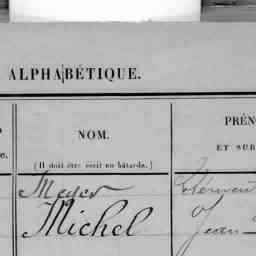 ALPHABÉTIQUE.
NOM.
PRÉN
(Il doit être écrit en bâtarde.)
ET SUR
c.
Meyer
Michel Jean